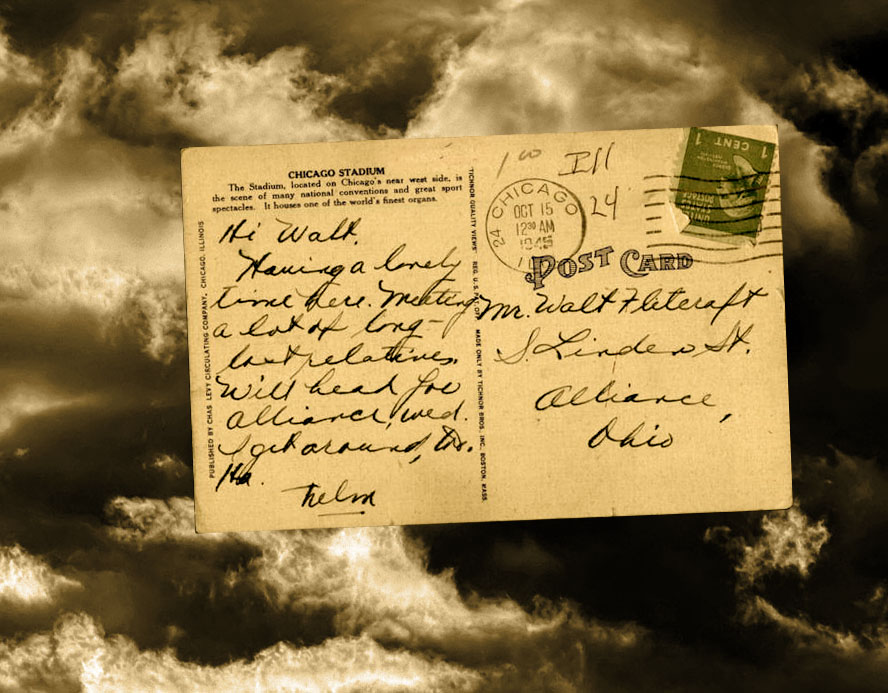 CHICAGO STADIUM
The Stadium, located on Chicago's near west side, is
the scene of many national conventions and great sport
spectacles. It houses one of the world's finest organs.
Hi Walt.
Having a lovely
time here. Meeting
a lot of long-
lost relatives.
Will head for
Alliance, Wed.
I get around, tho.
Ha.
Thelm
PUBLISHED BY CHAS LEVY CIRCULATING COMPANY, CHICAGO, ILLINOIS
TICHNOR QUALITY VIEWS REG. U.S. PAT. OFF. MADE ONLY BY TICHNOR BROS., INC. BOSTON, MASS.
1 00
24
CHICAGO
OCT 15
12 30 AM
1945
24
1 CENT 1
UNITED
STATES
POSTAGE
POST CARD
Mr. Walt Flitcraft
S. Linden St.
Alliance,
Ohio